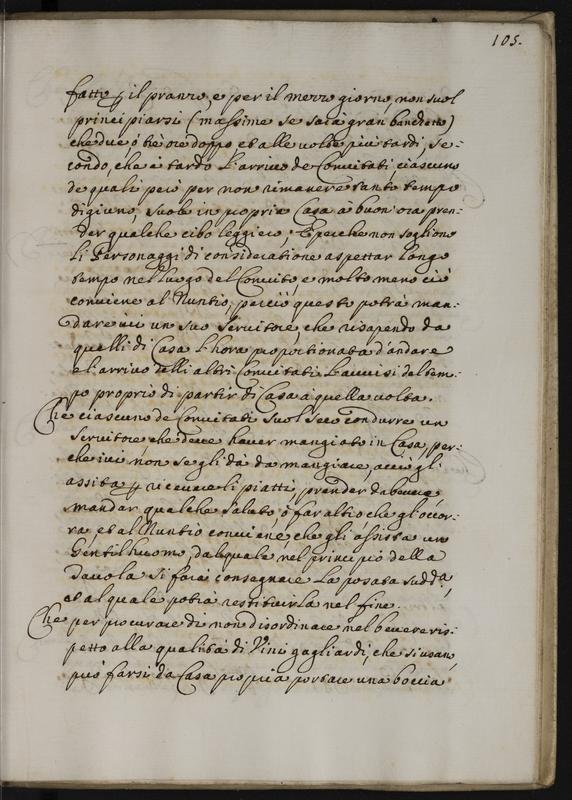 105.
fatto p il pranzo, e per il mezzo giorno, non suol
principiarsi (massime se sarà gran banchetto)
che due, ò trè ore doppo et alle volte più tardi, se-
condo, che è tardo l'arrivo de Convitati, ciascuno
de quali però per non rimanere tanto tempo
digiuno, suole in propria Casa à buon'ora pren-
der qualche cibo leggiero; E perche non sogliono
li Personaggi di consideratione aspettar longo
tempo nel luogo del Convito e molto meno ciò
conviene al Nuntio, perciò questo potrà man-
dare ivi un suo servitore, che risapendo da
quelli di Casa l'hora proportionata d'andare
e l'arrivo delli altri Convitati l'avvisi del tem-
po proprio di partir di Casa à quella volta.
Che ciascuno de Convitati suol seco condurre un
servitore, che deve haver mangiato in Casa, per-
che ivi non se gli dà da mangiare, acciò gli
assista p ricevere li piatti, prender da bevere,
mandar qualche saluto, ò far altro che gl'occor-
ra, et al Nuntio conviene, che gli assista un
Gentilhuomo, dal quale nel principio della
Tavola si farà consegnare la posata sudda,
et al quale potrà restituirla nel fine.
Che per procurare di non disordinare nel bevere ris-
petto alla qualità di Vini gagliardi, che si usano,
può farsi da Casa propria portare una boccia